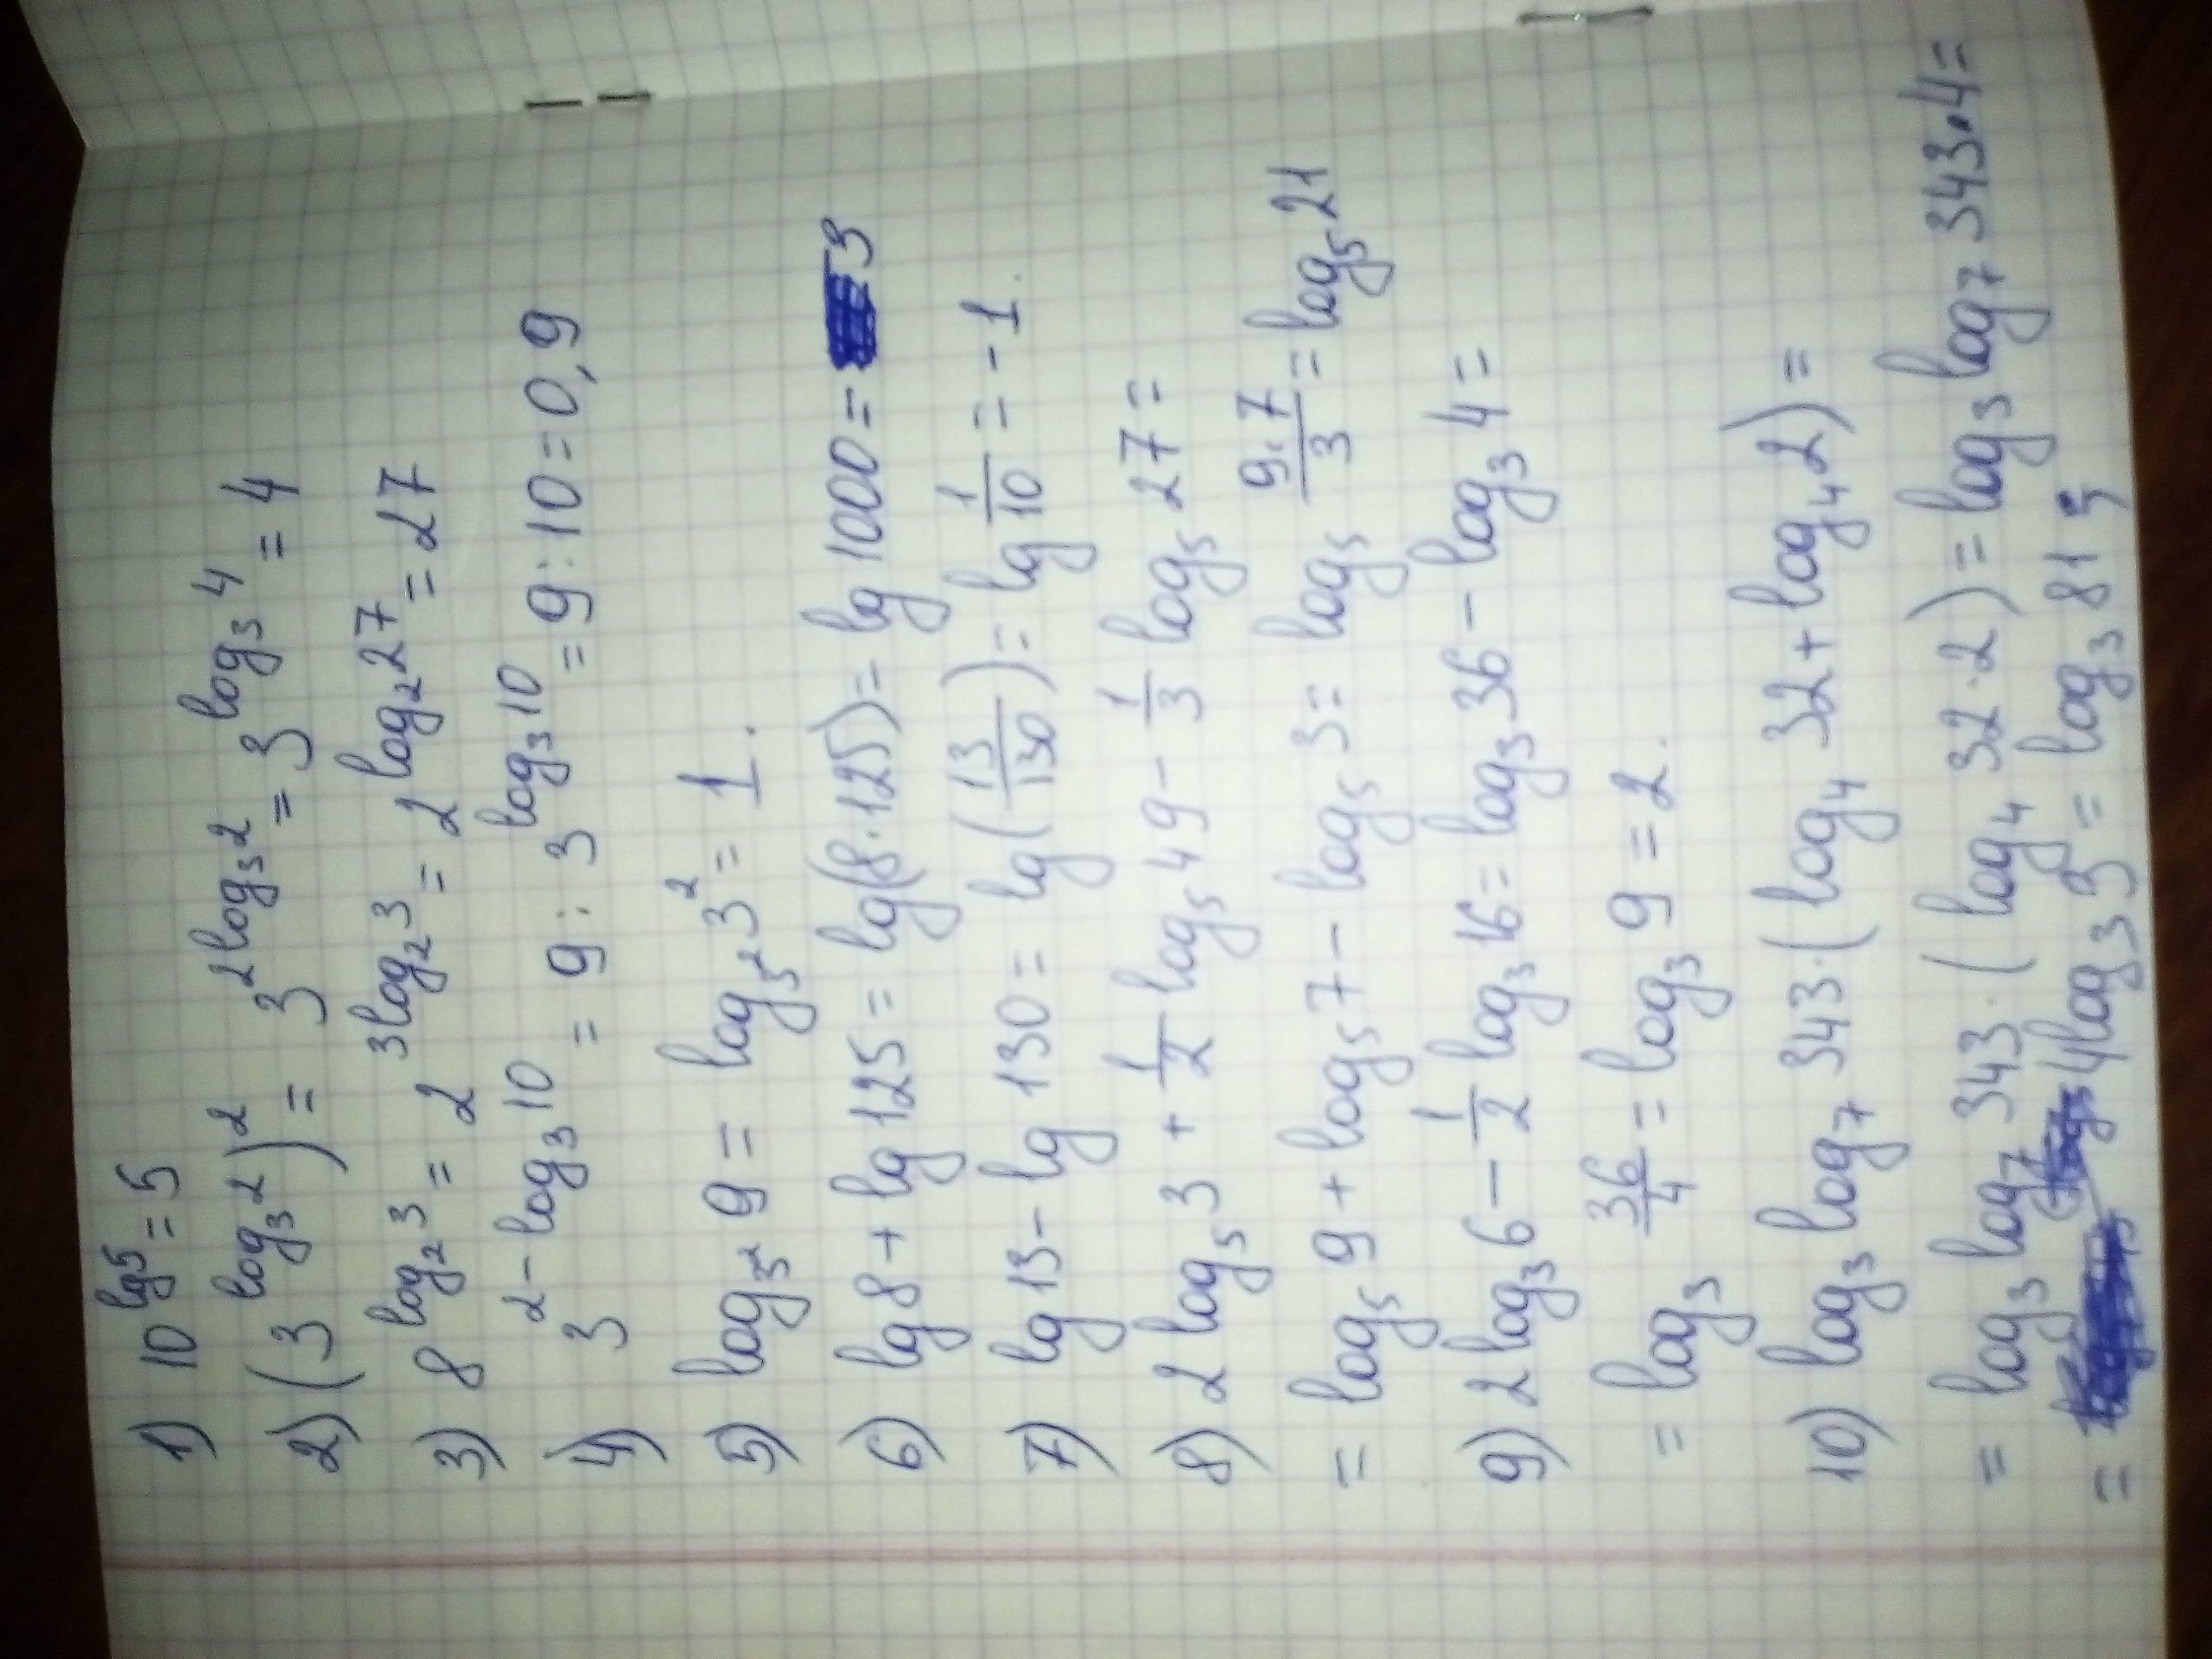 1) 10^{lg5} = 5
2) (3^{log₃2})² = 3^{2log₃2} = 3^{log₃4} = 4
3) 8^{log₂3} = 2^{3log₂3} = 2^{log₂27} = 27
4) 3^{2-log₃10} = 9 : 3^{log₃10} = 9 : 10 = 0,9
5) log_{3²} 9 = log_{3²} 3² = 1.
6) lg 8 + lg 125 = lg(8·125) = lg 1000 = 3
7) lg 13 - lg 130 = lg(13/130) = lg 1/10 = -1.
8) 2 log₅ 3 + 1/2 log₅ 49 - 1/3 log₅ 27 =
= log₅ 9 + log₅ 7 - log₅ 3 = log₅ 9·7/3 = log₅ 21
9) 2 log₃ 6 - 1/2 log₃ 16 = log₃ 36 - log₃ 4 =
= log₃ 36/4 = log₃ 9 = 2.
10) log₃ log₇ 343·(log₄ 32 + log₄ 2) =
= log₃ log₇ 343·(log₄ 32·2) = log₃ log₇ 343·4 =
= 4log₃ 3 = log₃ 81;